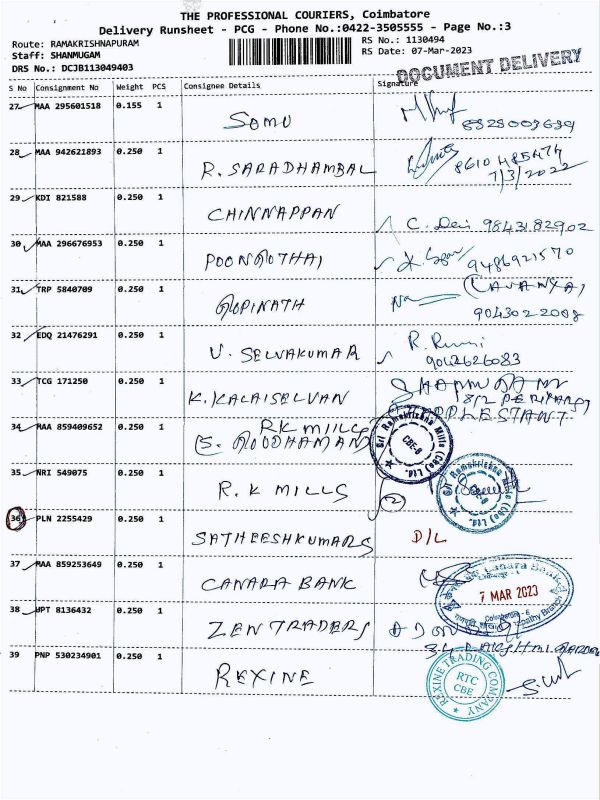 THE PROFESSIONAL COURIERS, Coimbatore
Delivery Runsheet - PCG - Phone No.:0422-3505555 - Page No.:3
Route: RAMAKRISHNAPURAM
RS No.: 1130494
Staff: SHANMUGAM
RS Date: 07-Mar-2023
DRS No.: DCJB113049403
DOCUMENT DELIVERY
S No Consignment No Weight PCS Consignee Details Signature
27 MAA 295601518 0.155 1 SOMU
28 MAA 942621893 0.250 1 R. SARADHAMBAL 8610 485474
7/3/2022
29 KDI 821588 0.250 1 CHINNAPPAN C. Devi 9843182902
30 MAA 296676953 0.250 1 POONGOTHAI 9486921570
31 TRP 5840709 0.250 1 GOPINATH (LAVANYA)
9043022008
32 EDQ 21476291 0.250 1 V. SELVAKUMAR R.
9042626083
33 TCG 171250 0.250 1 K. KALAISELVAN
34 MAA 859409652 0.250 1 RK MILLS
Sri Ramakrishna Mills (Cbe) Ltd.
CBE-6
35 NRI 549075 0.250 1 R.K MILLS (2)
Sri Ramakrishna Mills (Cbe) Ltd.
36 PLN 2255429 0.250 1 SATHEESHKUMARS D/L
37 MAA 859253649 0.250 1 CANARA BANK
Canara Bank
7 MAR 2023
Coimbatore - 6
38 UPT 8136432 0.250 1 ZEN TRADERS
39 PNP 530234901 0.250 1 REXINE
REXINE TRADING COMPANY
RTC
CBE